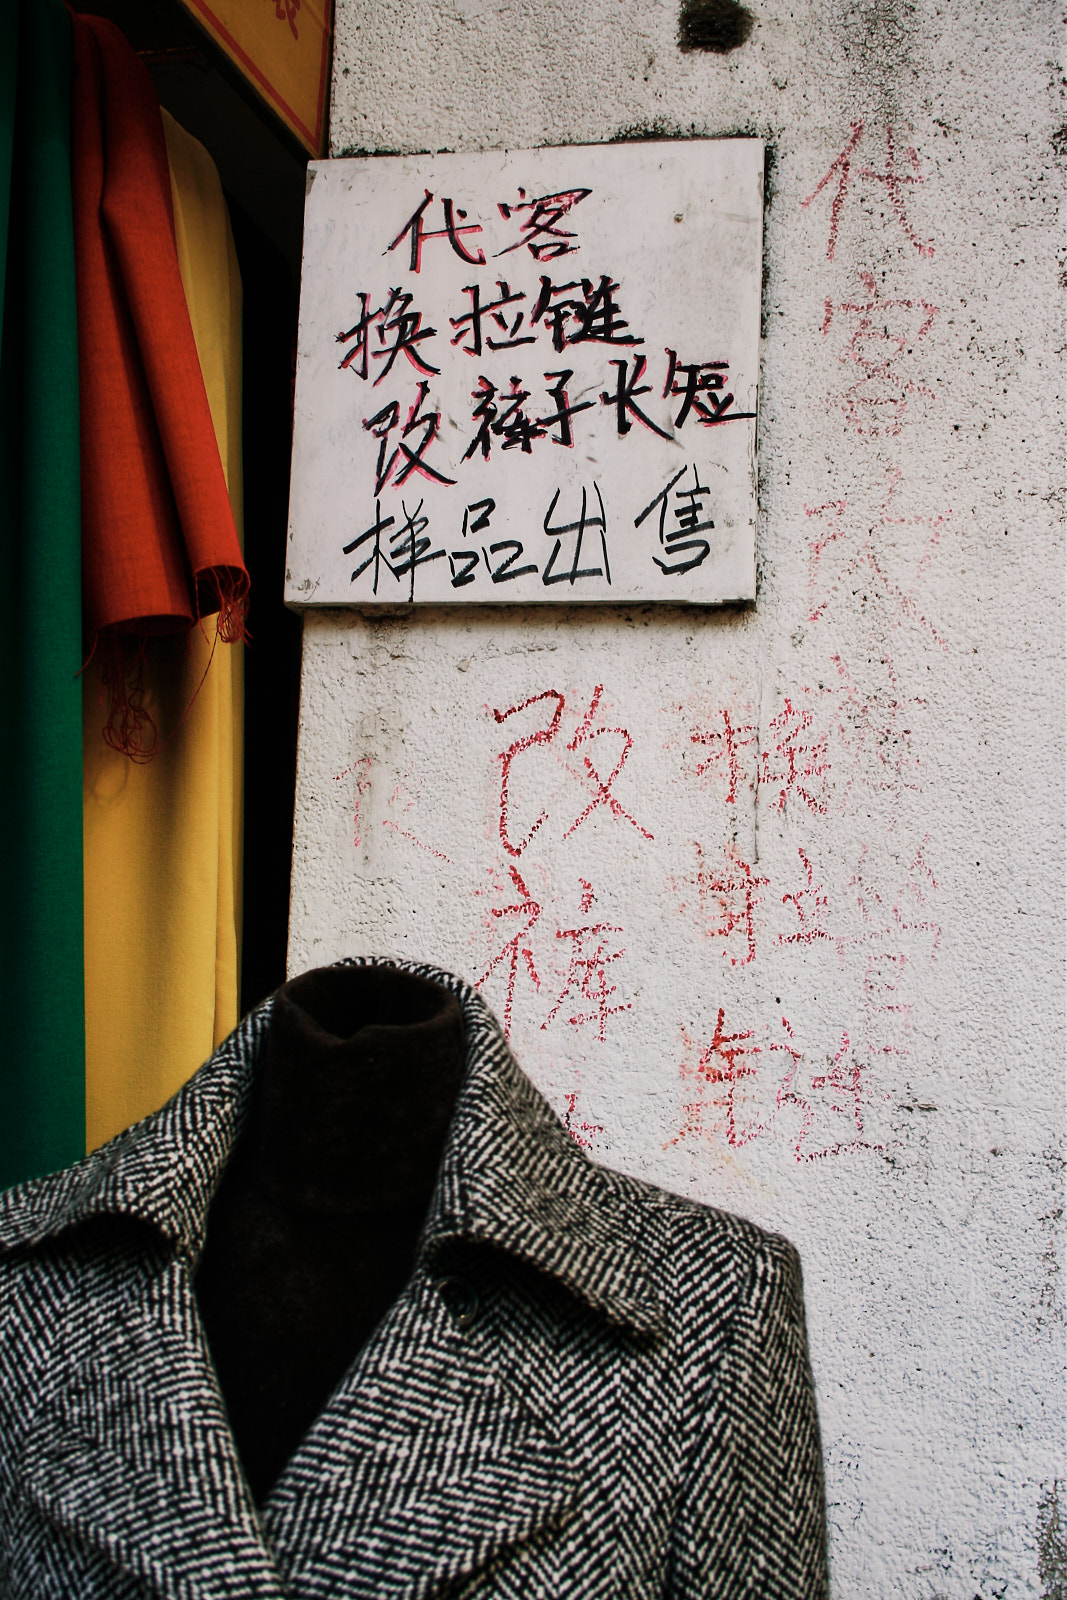 代客
换拉链
改裤子长短
样品出售
代客改
改裤
换拉链